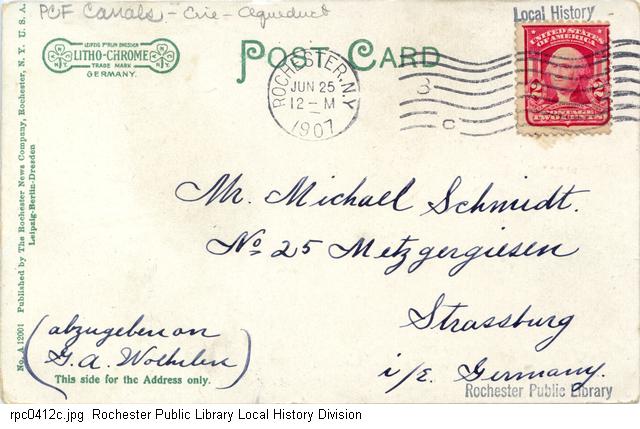 PCF Canals - Erie - Aqueduct
Local History
LEIPZIG B'RLIN DRESDEN
LITHO-CHROME
TRADE MARK
N.Y. N.Y.
GERMANY.
POST CARD
ROCHESTER, N.Y.
JUN 25
12-M
1907
3
UNITED STATES
OF AMERICA
2 2
POSTAGE
TWO CENTS
Mr. Michael Schmidt.
No 25 Metzgergiesen
Strassburg
i/E. Germany.
(abzugeben an
G. A. Woehrlen)
This side for the Address only.
No. A 12001 Published by The Rochester News Company, Rochester, N. Y. U. S. A.
Leipzig-Berlin-Dresden
Rochester Public Library
rpc0412c.jpg Rochester Public Library Local History Division